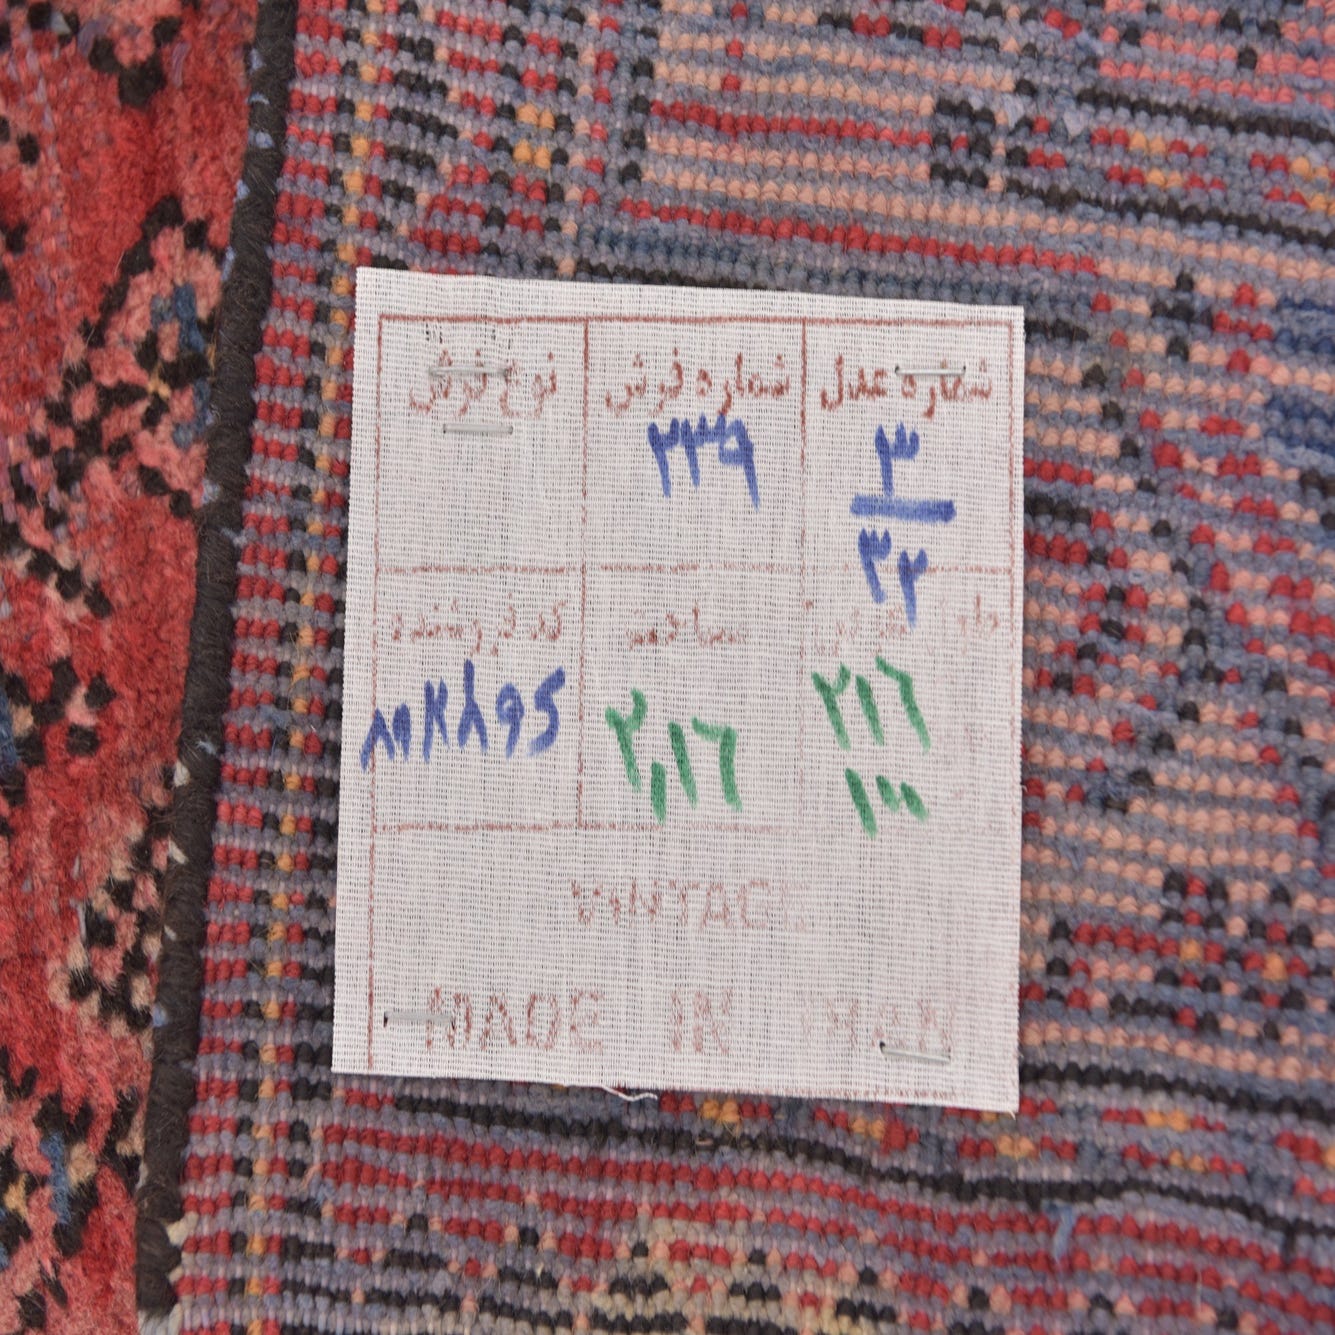 شماره عدل شماره فرش نوع فرش
۳ ۲۳۹
۳۲
مساحت کد فروشنده
۲۱۶ ۲,۱۶
۱۰۰
VINTAGE
MADE IN IRAN